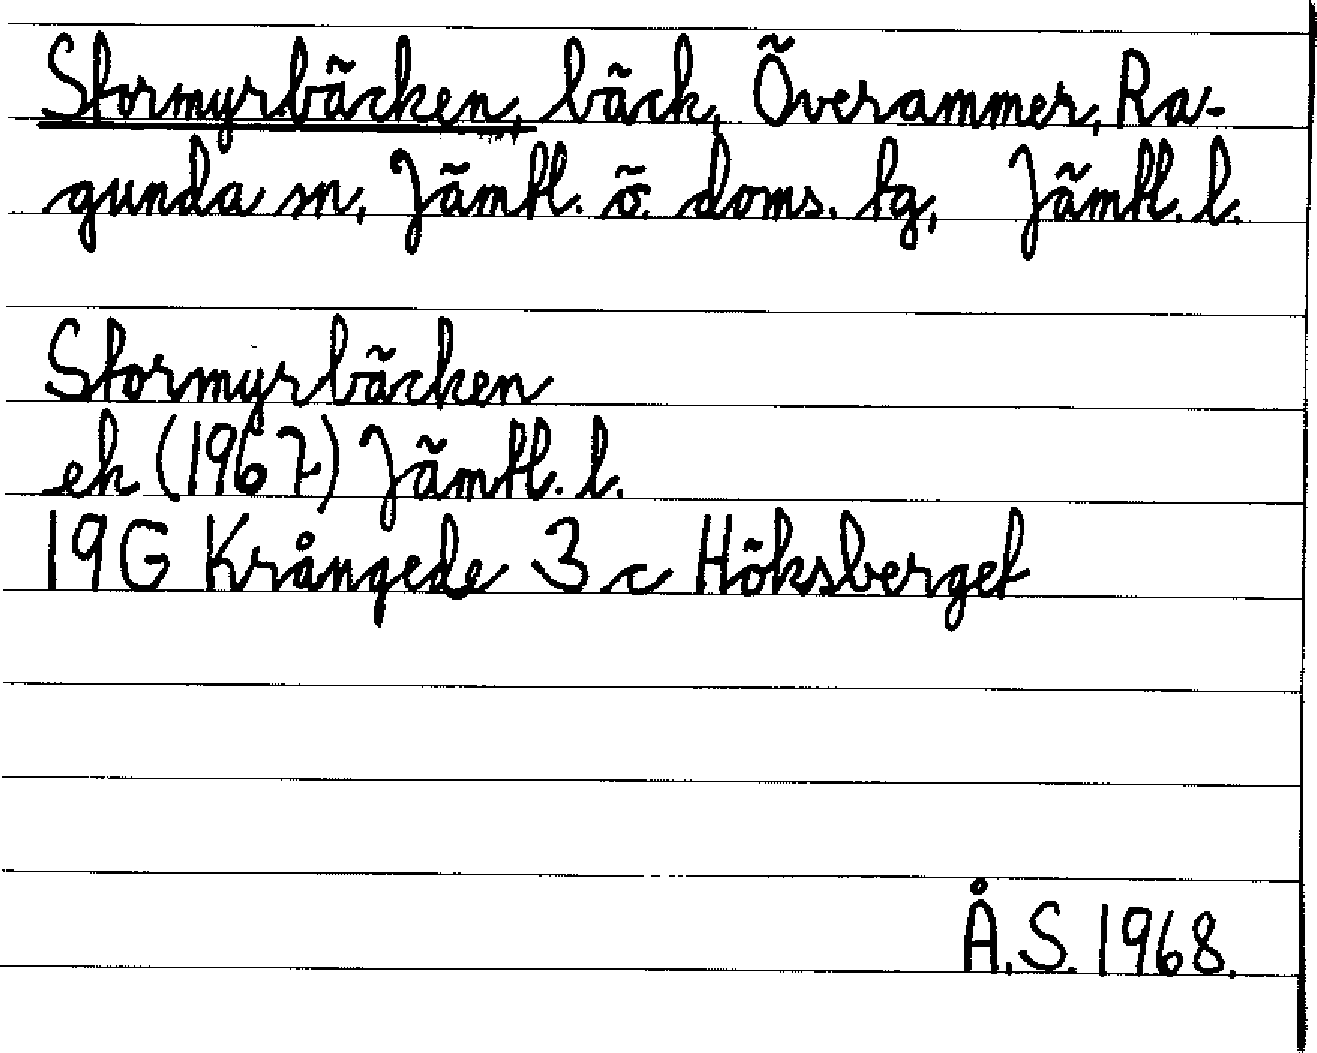 Stormyrbäcken, bäck, Överammer, Ra-
gunda sn, Jämtl. ö. doms. tg, Jämtl. l.
Stormyrbäcken
ek (1967) Jämtl. l.
19G Krångede 3 c Höksberget
Å.S. 1968.